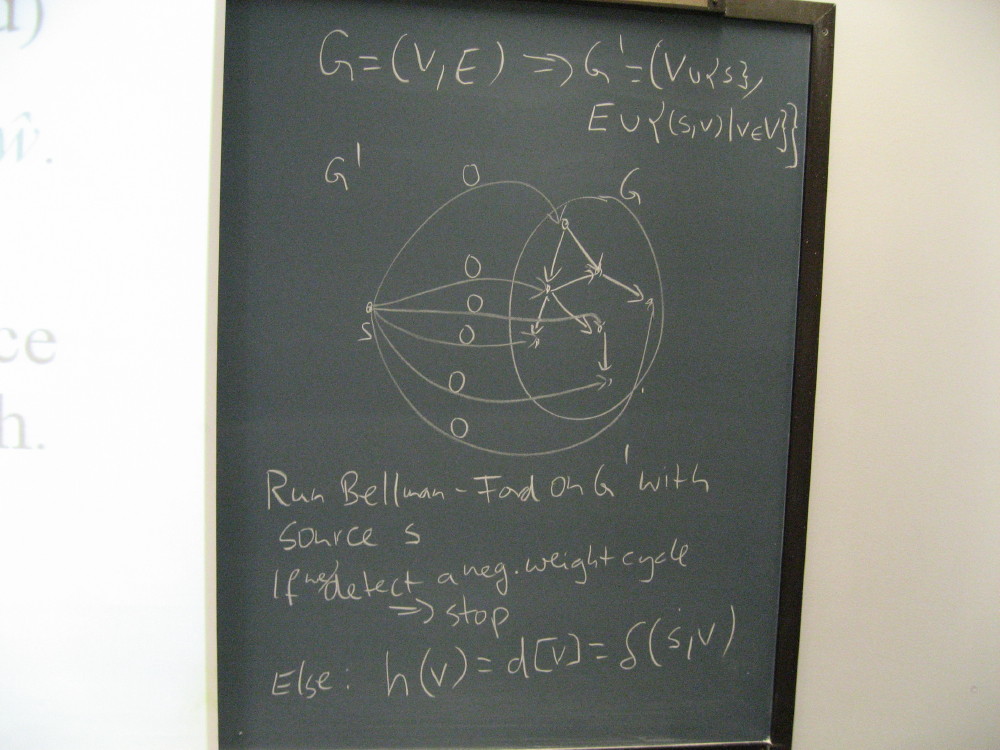 d)
ŵ.
ce
h.
G=(V,E) => G'=(V∪{s},
E∪{(s,v)|v∈V}}
G'
G
0
0
0
0
0
0
s
Run Bellman-Ford on G' with
source s
If we detect a neg. weight cycle
=> stop
Else: h(v) = d[v] = δ(s,v)